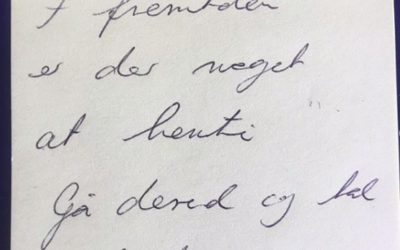 I fremtiden
er der noget
at hente i
Gå derud og tal